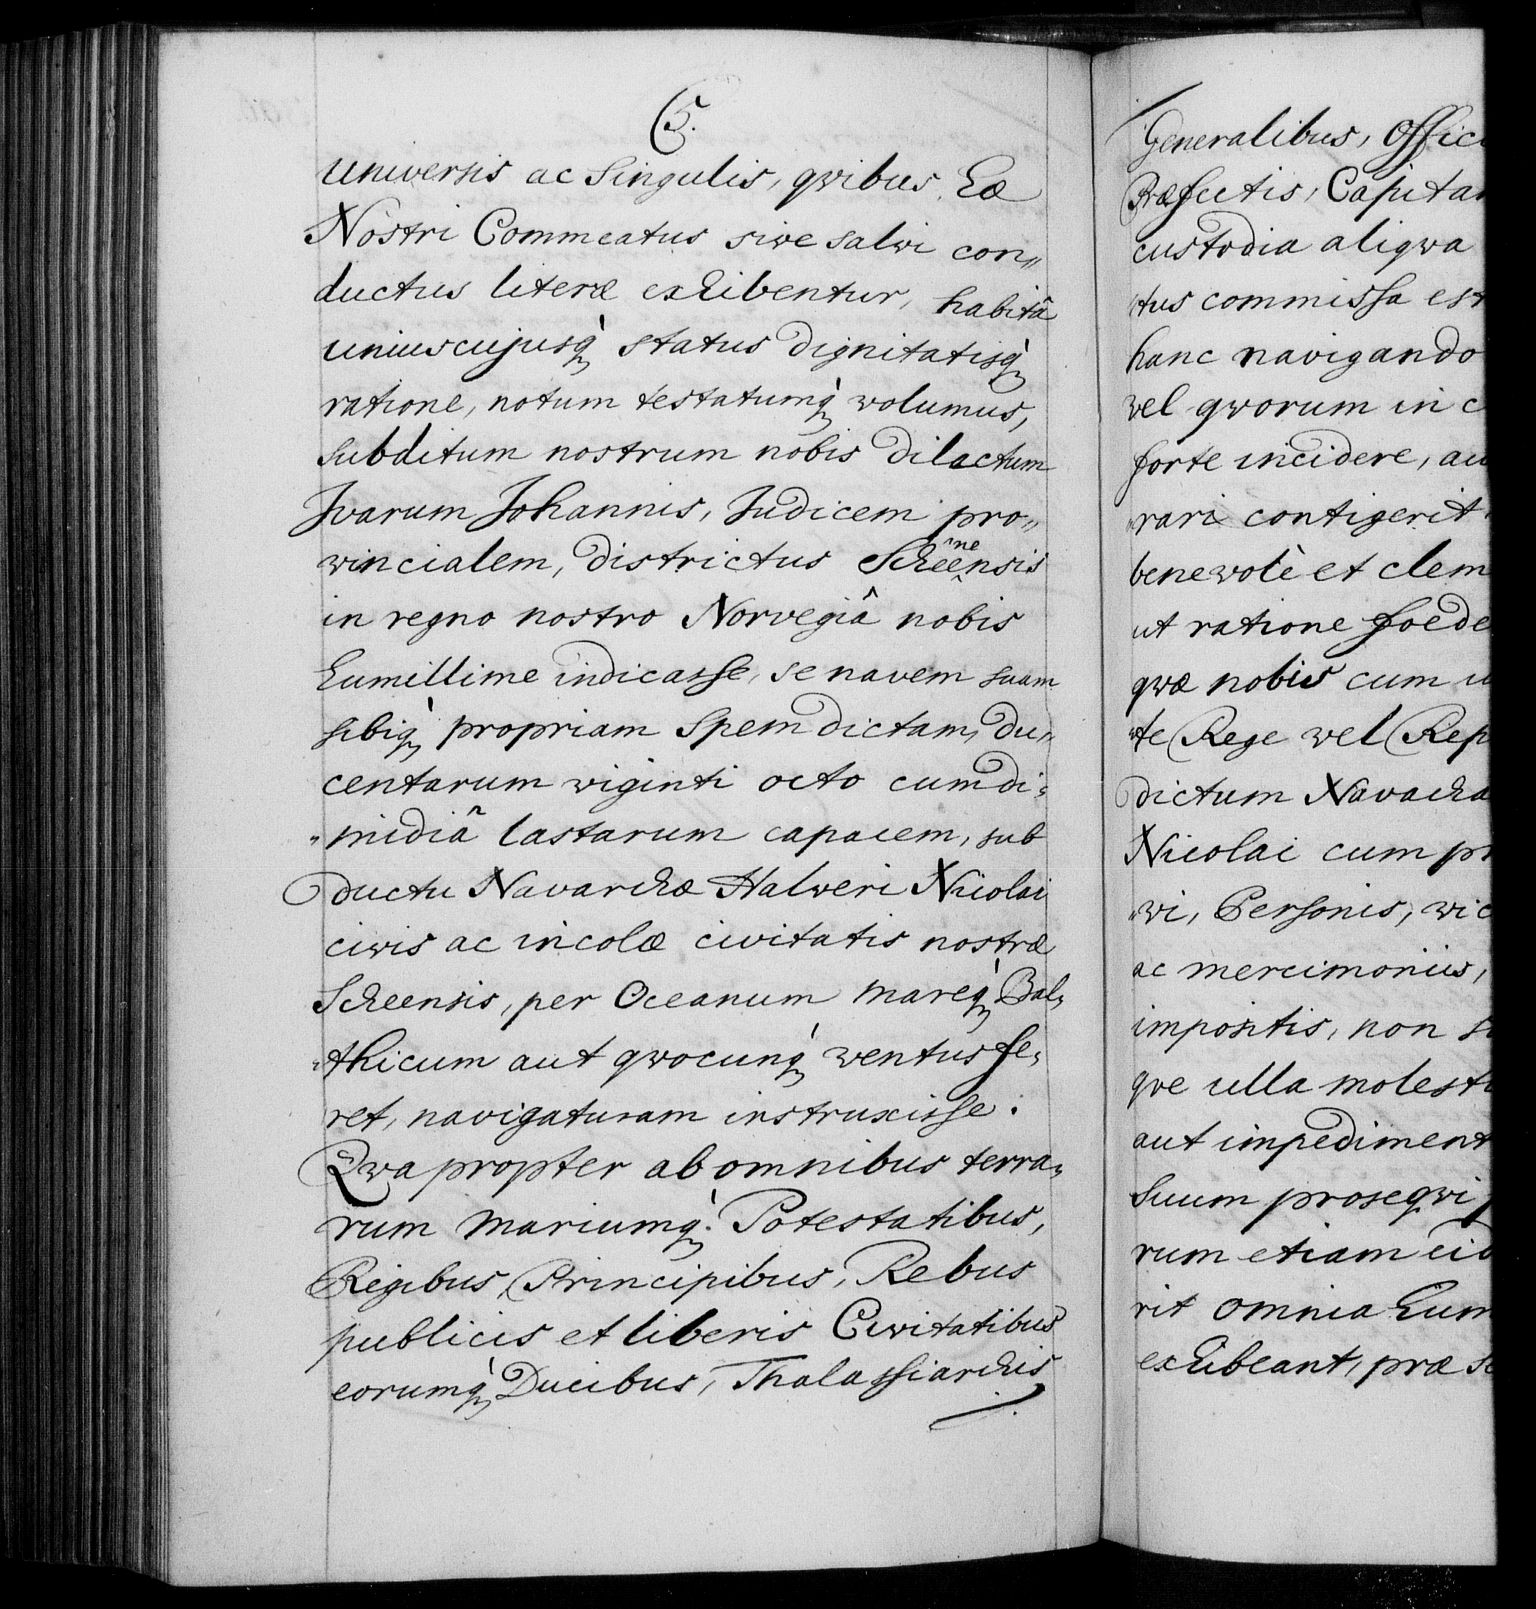 C5.
universis ac Singulis, qvibus hæ
Nostri Commeatus sive salvi con„
ductus literæ exhibentur, habitâ
uniuscujusq̀ status dignitatisq̀
ratione, notum testatumq̀ volumus,
subditum nostrum nobis dilectum
Ivarum Johannis, Judicem pro„
vincialem, districtus Scheenensis
in regno nostro Norvegiâ nobis
humillime indicasse, se navem suam
sibiq̀ propriam Spem dictam, du„
centarum viginti octo cum di„
„midiâ lastarum capacem, sub
ductu Navarchæ Halveri Nicolai
civis ac incolæ civitatis nostræ
Scheensis, per Oceanum mareq̀ Bal„
„thicum aut qvocunq̀ ventus fe„
ret, navigaturam instruxisse.
Qvapropter ab omnibus terra„
rum mariumq̀. Potestatibus,
Regibus, Principibus, Rebus
publicis et liberis Civitatibus
eorumq̀ Ducibus, Thalassiarchis
Generalibus, Offici
Præfectis, Capitan
custodia aliqva
tus commissa est
hanc navigando
vel qvorum in c
forte incidere, au
„rari contigerit
benevolè et clem
ut ratione foede
qvæ nobis cum u
„te Rege vel Rep
dictum Navarcha
Nicolai cum pr
„vi, Personis, vic
ac mercimoniis,
impositis, non s
qve ulla molesti
aut impediment
suum proseqvi p
rum etiam eid
rit omnia hum
exhibeant, præ se